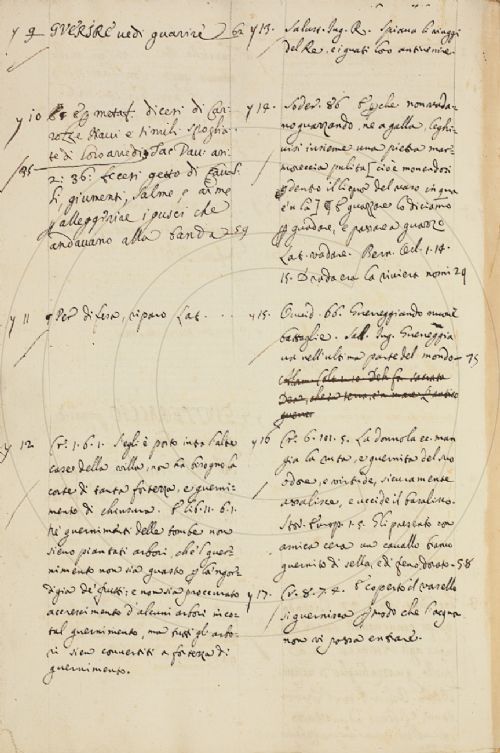 y 9 GVERIRE vedi guarire 62
y 10 Et metaf. dicesi di Car-
rozze Navi e simili spoglia-
te di loro arredi Dav.
2: 36: getto di Cavalli,
giumenti, Salme, e arme
alleggiriae i gusci che
andavano alla banda 259
y 11 Per difesa, riparo Lat. . . .
y 12 Cr. 1. 6. 1. Segli è posto intra l'alte
case della villa, non ha bisogno la
corte di tanta fortezza, e guerni-
mento di chiusura. E lib. 11. 6. 1.
ne guernimenti delle tombe non
sieno piantati arbori, chè'l guer-
nimento non sia guasto p la ingor-
digia de' frutti; e non sia proccurato
accrescimento d'alcuni arbori in co-
tal guernimento, ma tutti gli arbo-
ri sien convertiti a fortezza di
guernimento.
y 13. Salust. Iug. R. Spiava li viaggi
del Re, e i guati loro antivenire.
y 14. Soder. 86 E pche non vada-
no guazzando, ne a galla, leghi-
visi insieme una pietra mar-
moreccia pulita [cioè mondarsi
dentro il legno del vaso in qua
e 'n là] E guazzare lo diciamo
p guadare, e passare a guazzo
Lat. vadare. Bern. Orl. 1. 14.
15. Dradra era la riviera nomi 29
y 15. Ovvid. 66. Guereggiando
battaglie. Sall. Iug. Guereggia
va nell'ultima parte del mondo 75
y 16 Cr. 6. 101. 5. La donnola ec. man-
gia la ruta, e guernita del suo
odore, e virtude, sicuramente
assalisce, e uccide il basalisco.
Stor. Europ. 1. 5. Gli presentò con
amica cera un cavallo bravo
guernito di sella, e di freno dorato. 58
y 17. Cr. 8. 7. 4. E coperto il vasello
si guernisca p modo che l'acqua
non vi possa entrare.